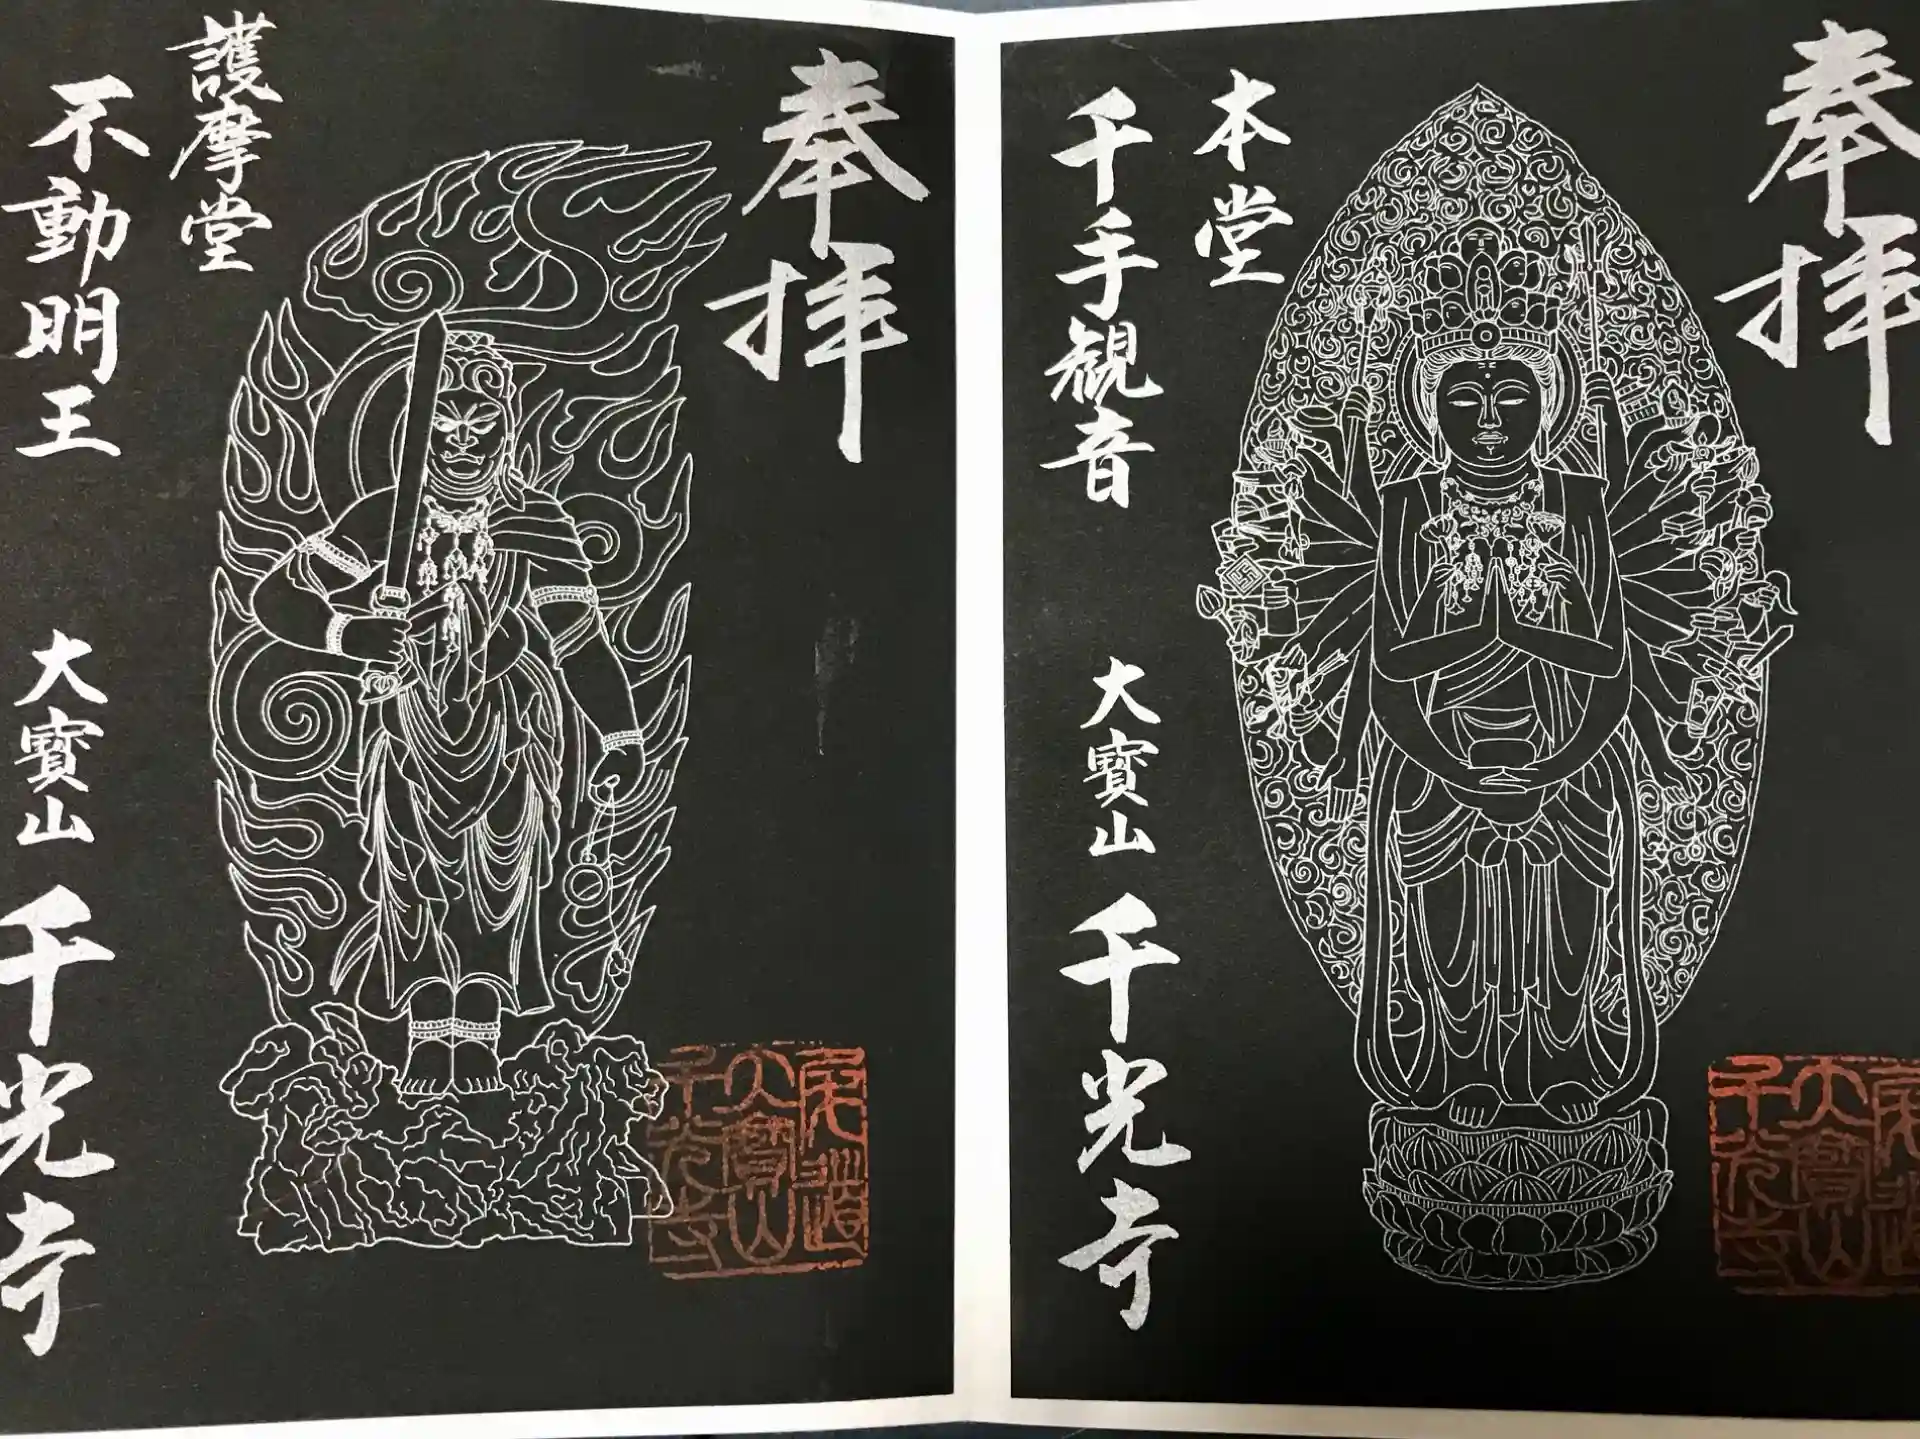 奉拝
尾道
大寶山
千光寺
本堂
千手観音 大寶山 千光寺
奉拝
尾道
大寶山
千光寺
護摩堂
不動明王 大寶山 千光寺